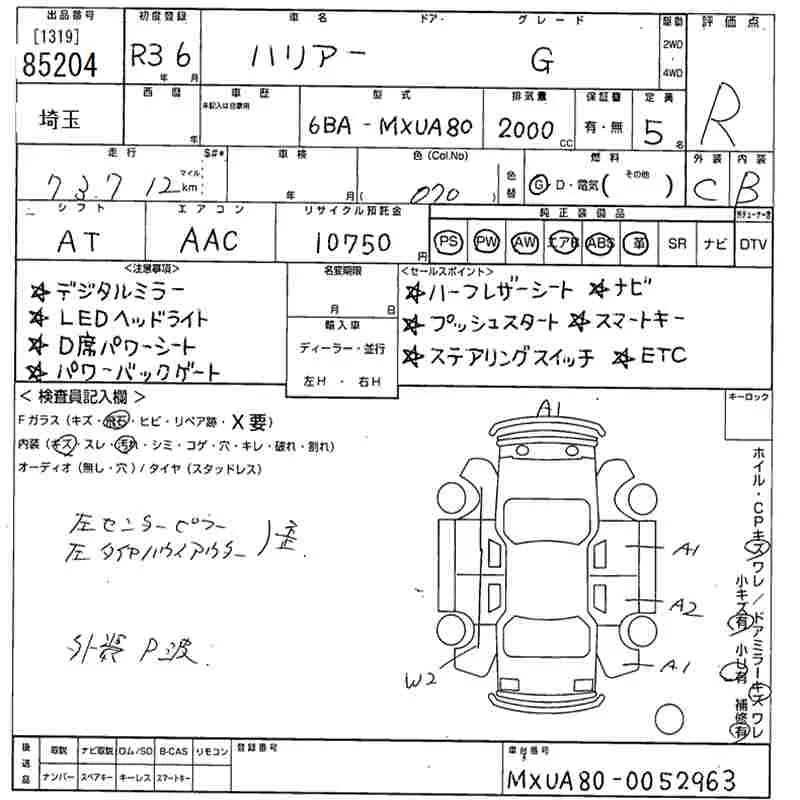 出品番号 初度登録 車名 ドア・ グレード 駆動 評価点
[1319]
85204 R3 6 ハリアー G 2WD・4WD R
年 月
西暦 車歴 型式 排気量 保証書 定員
未記入は自家用
埼玉 年 6BA-MXUA80 2000cc 有・無 5名
走行 S#* 車検 色(Col.No) 色替 燃料 外装 内装
73.712 マイル km 年 月 ( 070 ) Ⓖ D・電気( その他 ) C B
シフト エアコン リサイクル預託金 純正装備品
AT AAC 10750円 PS PW AW エアB ABS 革 SR ナビ DTV
<注意事項> 名変期限 <セールスポイント>
☆デジタルミラー
☆LEDヘッドライト
☆D席パワーシート
☆パワーバックゲート
月 日
輸入車
ディーラー・並行
左H・右H
☆ハーフレザーシート ☆ナビ
☆プッシュスタート ☆スマートキー
☆ステアリングスイッチ ☆ETC
<検査員記入欄> キーロック
Fガラス(キズ・飛石・ヒビ・リペア跡・X要)
内装(キズ・スレ・汚れ・シミ・コゲ・穴・キレ・破れ・割れ)
オーディオ(無し・穴)/タイヤ(スタッドレス)
左センターピラー
左タイヤハウスアウター
外装 P波
A1
A1
A2
A1
W2
ホイル・CPキズワレ/ドアミラーキズワレ
小キズ有 小U有 補修有
後送品 取説 ナビ取説 ロム/SD B-CAS リモコン 登録番号 車台番号
ナンバー スペアキー キーレス スマートキー MXUA80-0052963